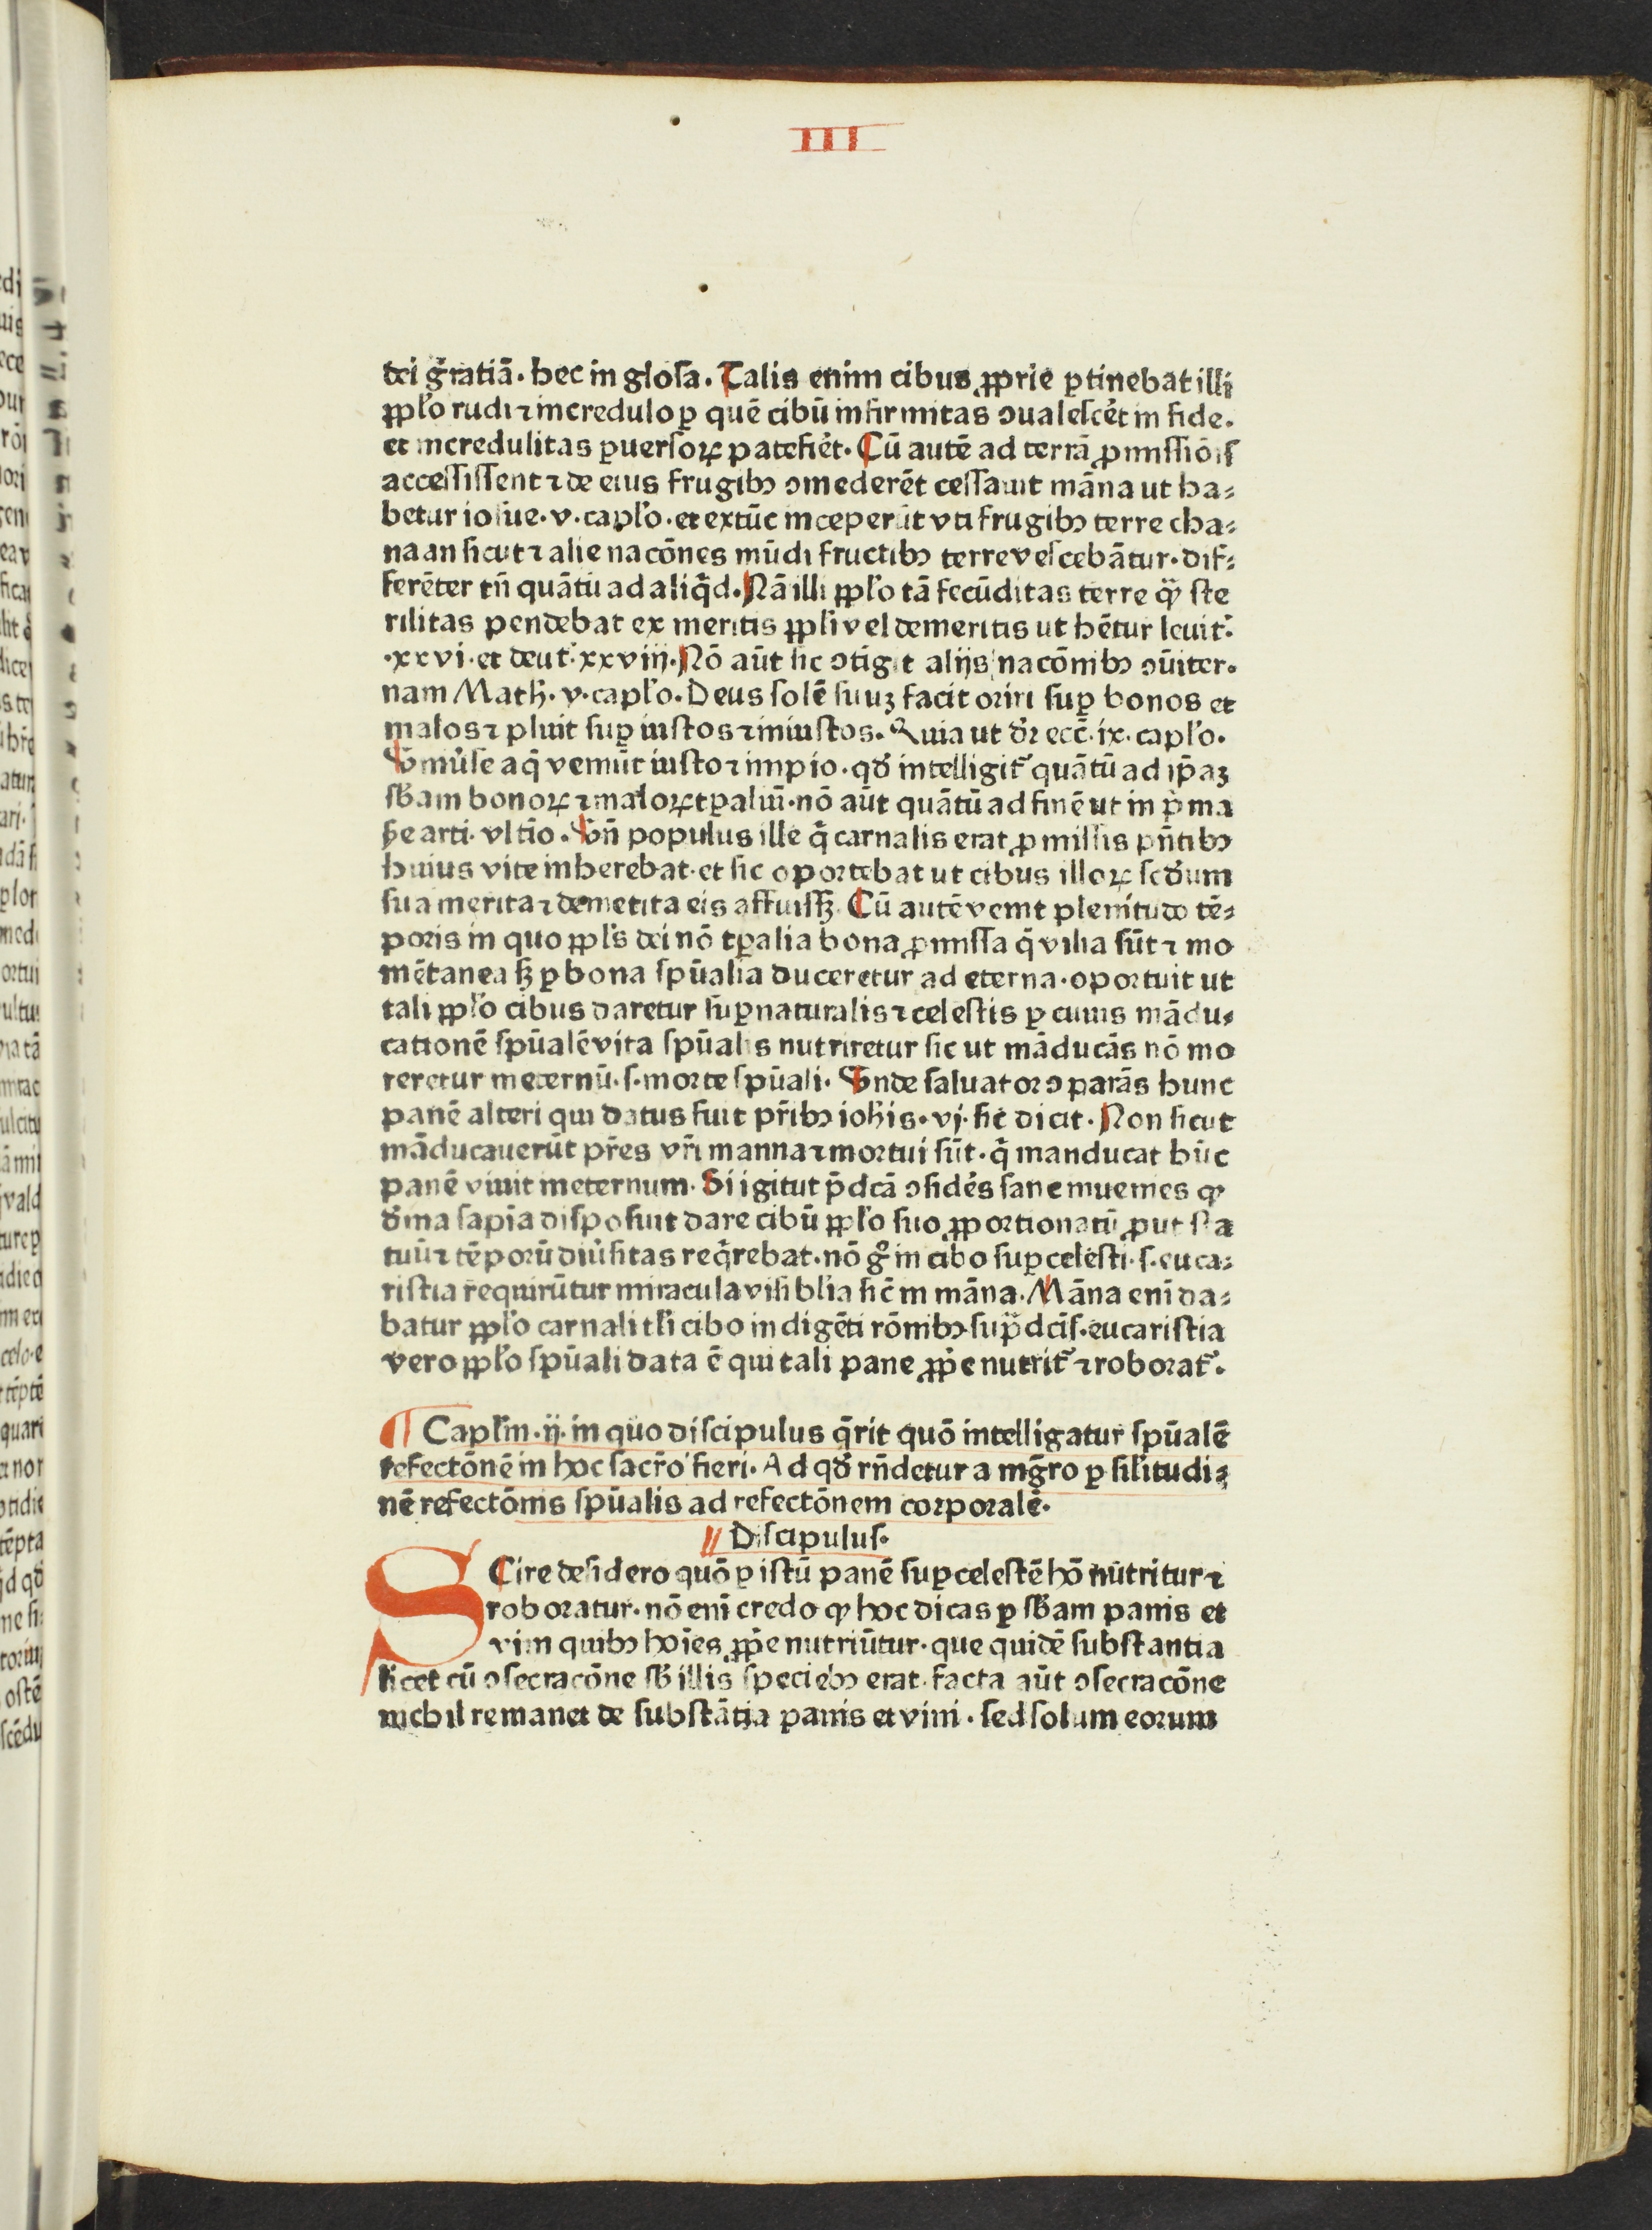 III
dei gr̄atiā. hec in glosa. Talis enim cibus ꝓprie ꝑtinebat illi
ꝓpľo rudi ⁊ incredulo ꝑ quē cibū infirmitas ↄualescēt in fide.
et incredulitas ꝑuersoꝝ patefiēt. Cū autē ad terrā ꝓmissiōis
accessissent ⁊ de eius frugibꝫ ↄmederēt cessauit māna ut ha⸗
betur iosue. v. capľo. et extūc inceperūt vti frugibꝫ terre cha⸗
naan sicut ⁊ alie nacōnes mūdi fructibꝫ terre vescebātur. dif⸗
ferēter tn̄ quātū ad aliq̄d. Nā illi ꝓpľo tā fecūditas terre qꝫ ste
rilitas pendebat ex meritis ꝓpľi vel demeritis ut hētur leuit.
.xxvi. et deut. xxviij. Nō aūt sic ↄtigit alijs nacōnibꝫ ↄūiter.
nam Math. v. capľo. Deus solē suuꝫ facit oriri suꝑ bonos et
malos ⁊ pluit suꝑ iustos ⁊ iniustos. Quia ut dr̄ ecc̄. ix. capľo.
Vniūse aq̄ veniūt iusto ⁊ impio. qd̄ intelligit᷑ quātū ad ip̄aꝫ
sb̄am bonoꝝ ⁊ maloꝝ tꝑaliū. nō aūt quātū ad finē ut in p̄ma
ṗte arti. vltīo. Vn̄ populus ille q̄ carnalis erat ꝓmissis pn̄tibꝫ
huius vite inherebat. et sic oportebat ut cibus illoꝝ scd̄um
sua merita ⁊ demetita eis affuissꝫ. Cū autē venit plenitudo tē⸗
poris in quo ꝓpľs dei nō tꝑalia bona ꝓmissa q̄ vilia sūt ⁊ mo
mētanea sꝫ ꝑ bona spūalia duceretur ad eterna. oportuit ut
tali ꝓpľo cibus daretur suꝑnaturalis ⁊ celestis ꝑ cuius mādu⸗
cationē spūalē vita spūalis nutriretur sic ut māducās nō mo
reretur ineternū. s. morte spūali. Vnde saluator ↄparās hunc
panē alteri qui datus fuit pr̄ibꝫ ioh̄is. vj. sic dicit. Non sicut
māducauerūt pr̄es vr̄i manna ⁊ mortui sūt. q̄ manducat hūc
panē viuit ineternum. Si igitut p̄dcā ↄsidēs sane inuenies qꝫ
diīna sapīa disposuit dare cibū ꝓpľo suo ꝓportionatū ꝓut sta
tuū ⁊ tēporū diūsitas reqrebat. nō g̊ in cibo suꝑcelesti. s. euca⸗
ristia requirūtur miracula visiblīa sic̄ in māna. Māna enī da⸗
batur ꝓpľo carnali tľi cibo indigēti rōnibꝫ sup̄dcīs. eucaristia
vero ꝓpľo spūali data ē qui tali pane ꝓp̄e nutrit᷑ ⁊ roborat᷑.
Capľm. ij. in quo discipulus q̄rit quō intelligatur spūalē
refectōnē in hoc sacr̄o fieri. Ad qd̄ rn̄detur a mgr̄o ꝑ siľitudi⸗
nē refectōnis spūalis ad refectōnem corporalē.
Discipulus.
SCire desidero quō ꝑ istū panē suꝑcelestē hō nutritur ⁊
roboratur. nō enī credo qꝫ hoc dicas ꝑ sb̄am panis et
vini quibꝫ hoīes ꝓp̄e nutriūtur. que quidē substantia
licet cū ↄsecracōne sb̄ illis speciebꝫ erat. facta aūt ↄsecracōne
nichil remanet de substātia panis et vini. sed solum eorum